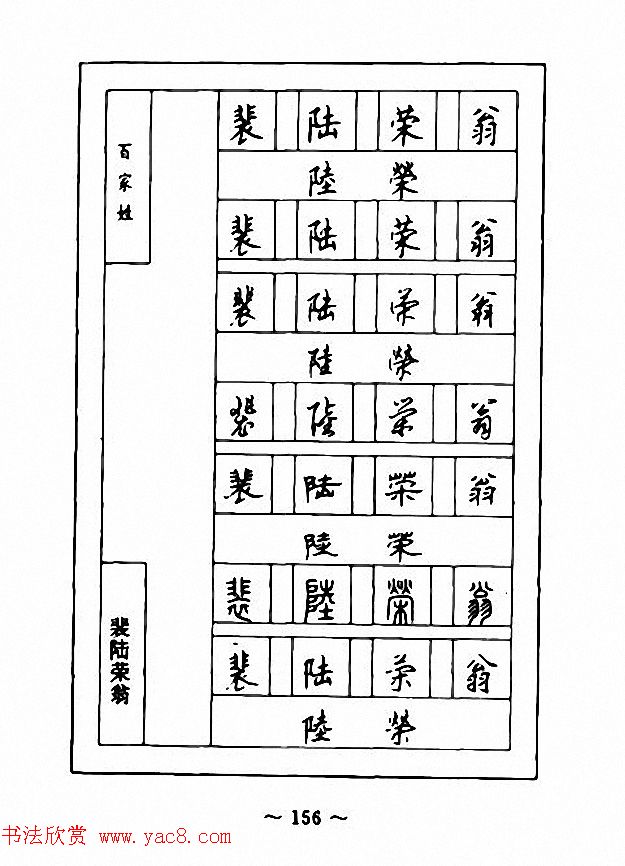 百家姓
裴 陆 荣 翁
陸 榮
裴 陆 荣 翁
裴 陆 荣 翁
陸 榮
裴 陸 荣 翁
裴 陆 荣 翁
陸 榮
裴 陸 榮 翁
裴 陆 荣 翁
陸 榮
裴陆荣翁
～ 156 ～
书法欣赏 www.yac8.com